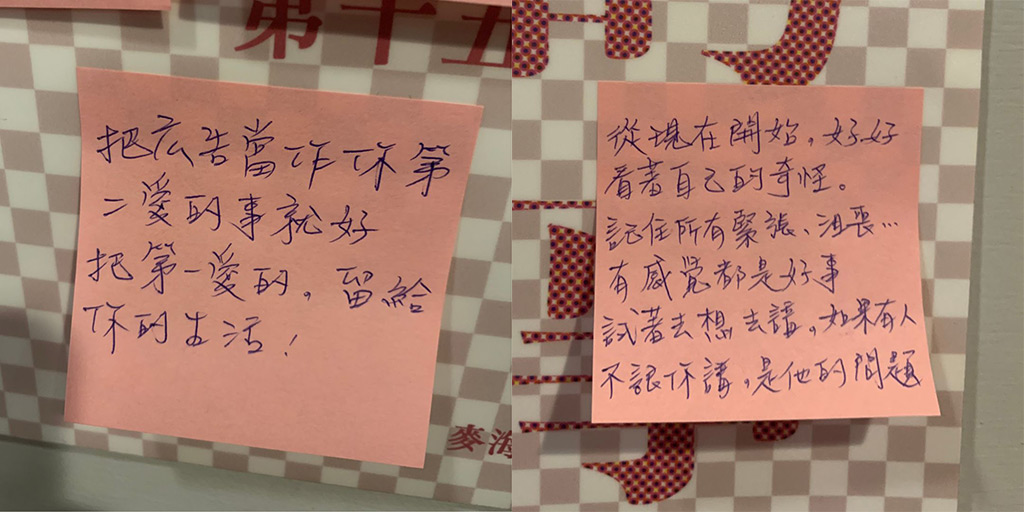 第十五
把広告當作你第
二愛的事就好
把第一愛的，留給
你的生活！
麥海
從現在開始，好好
看著自己的奇怪。
記住所有緊張、沮喪…
有感覚都是好事
試著去想去講，如果有人
不讓你講，是他的問題